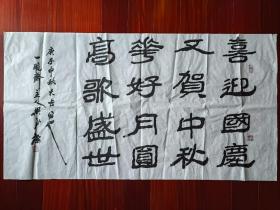 喜迎國慶
又賀中秋
華好月圓
高歌盛世
庚子中秋